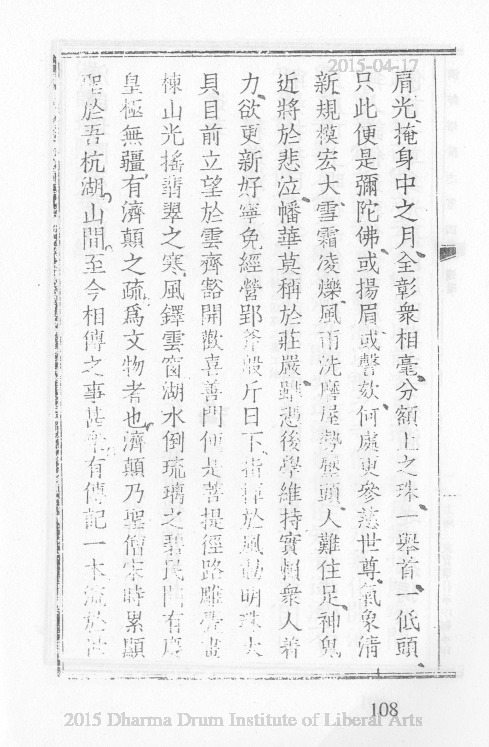 2015-04-17
肩光掩身中之月全彰衆相毫分額上之珠一舉首一低頭
只此便是彌陀佛或揚眉或謦欬何處更參慈世尊氣象清
新規模宏大雪霜凌爍風雨洗磨屋勢壓頭人難住足神鬼
近將於悲泣幡華莫稱於莊嚴雖悲後學維持實賴衆人着
力欲更新好寧免經營郢斧般斤日下指揮於風動明珠大
貝目前立望於雲齊豁開歡喜善門便是菩提徑路雕甍畫
棟山光搖翡翠之寒風鐸雲窗湖水倒琉璃之碧民間有慶
皇極無疆有濟顛之疏爲文物者也濟顛乃聖僧宋時累顯
聖於吾杭湖山間至今相傳之事甚衆有傳記一本流於世
108
2015 Dharma Drum Institute of Liberal Arts